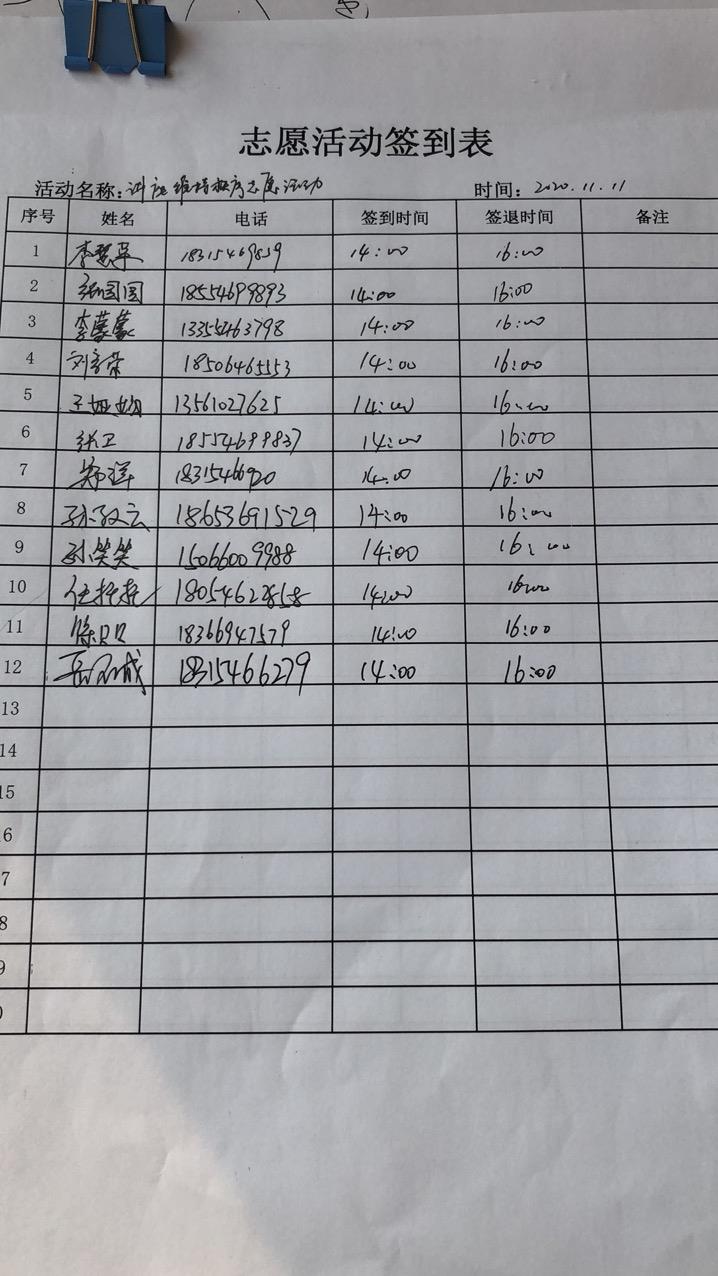 志愿活动签到表
活动名称：讲座维持秩序志愿活动 时间：2020.11.11
序号 姓名 电话 签到时间 签退时间 备注
1 18315469859 14:00 16:00
2 18554699893 14:00 16:00
3 李蒙蒙 13355463798 14:00 16:00
4 18506465553 14:00 16:00
5 13561027625 14:00 16:00
6 张卫 18554699837 14:00 16:00
7 14:00 16:00
8 18653691529 14:00 16:00
9 孙笑笑 15066009988 14:00 16:00
10 14:00 16:00
11 徐贝贝 18366947579 14:00 16:00
12 18315466279 14:00 16:00
13
14
15
6
7
8
9